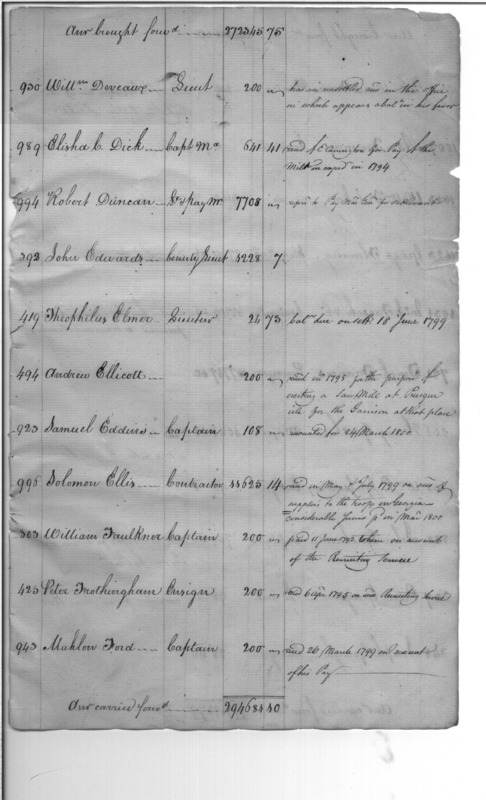 Amt brought forwd 272345 75
930 Willm Deveaux Lieut 200 " has an unsettled acct in the office
in which appears a balce in his favor
989 Elisha C. Dick Capt Ma 641 41 recd of Carrington for Pay of the
Milita in capd in 1794
994 Robert Duncan Dy Pay Mr 7708 " to Pay Mr Genl for settlement
392 John Edwards County Lieut 4228 7
419 Theophilus Elmer 24 73 balce due on settlt 18 June 1799
494 Andrew Ellicott 200 " recd in 1795 for the purpose of
erecting a Saw Mill at Presque
isle for the Garrison at that place
923 Samuel Eddins Captain 108 " accounted for 24 March 1800
996 Solomon Ellis Contractor 44625 14 recd in May & July 1799 on acct of
supplies to the troops in Georgia
considerable sums pd in Mar 1800
303 William Faulkner Captain 200 " paid 11 June 1795 taken on account
of the Recruiting Service
425 Peter Frothingham Ensign 200 " recd 6 Apr. 1795 on acct Recruiting Service
943 Mahlon Ford Captain 200 " recd 26 March 1799 on account
of his Pay
Amt carried forwd 294684 40